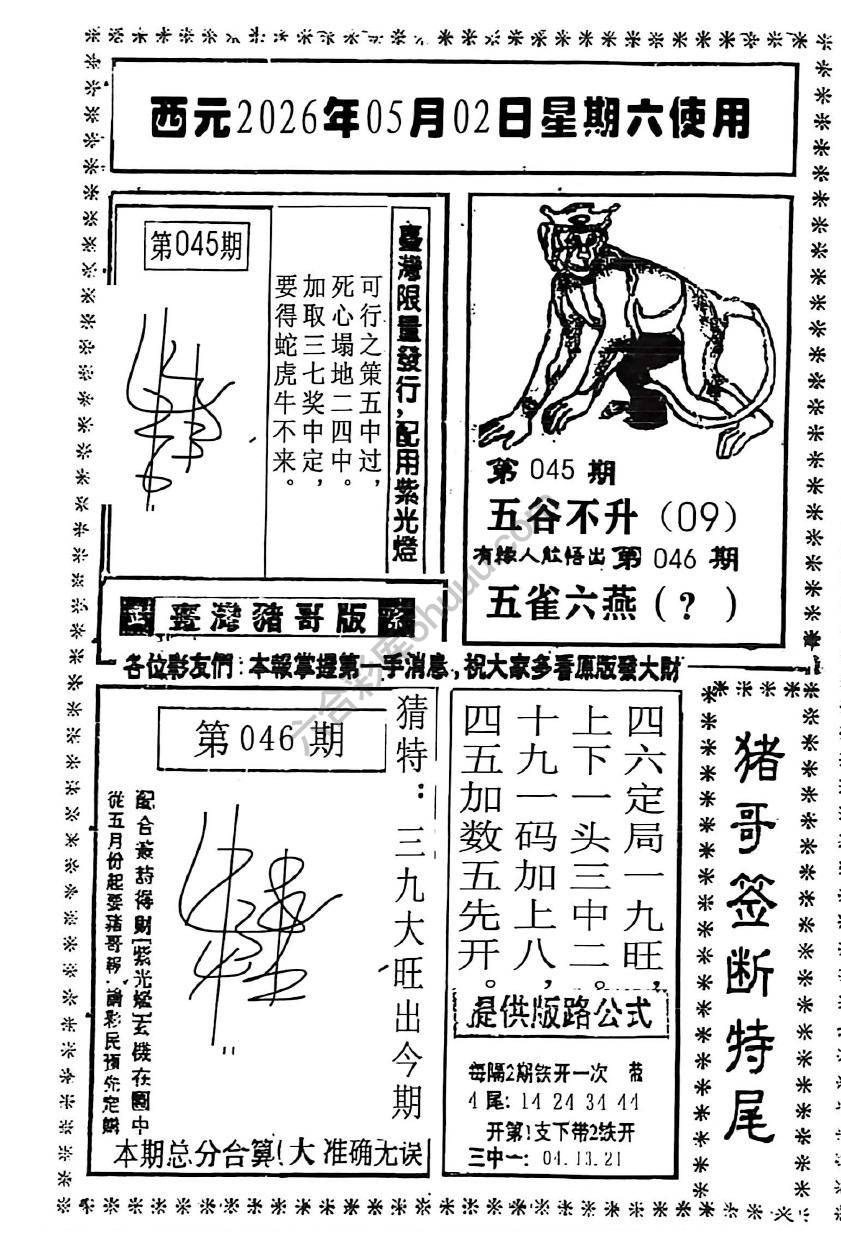 西元2026年05月02日星期六使用
第045期
可行之策五中过，
死心塌地二四中。
加取三七奖中定，
要得蛇虎牛不来。
臺灣限量發行，配用紫光燈
第 045 期
五谷不升（09）
有緣人能悟出 第 046 期
五雀六燕（？）
臺灣豬哥版
各位彩友們：本報掌握第一手消息，祝大家多看原版發大財
第 046 期
猜特：三九大旺出今期
從五月份起要豬哥報 請彩民預先定購
本期总分合算！大 准确无误
四六定局一九旺，
上下一头三中二。
十九一码加上八，
四五加数五先开。
提供版路公式
每隔2期铁开一次
4尾：14 24 34 44
开第1支下带2铁开
三中一：04.13.21
猪哥签断特尾
六合彩库ohuuu.com